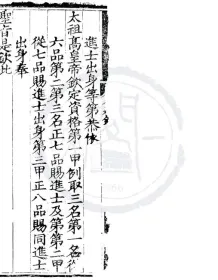 進士出身等第恭依
太祖高皇帝欽定資格第一甲例取三名第一名從
六品第二第三名正七品賜進士及第第二甲
從七品賜進士出身第三甲正八品賜同進士
出身奉
聖旨是欽此